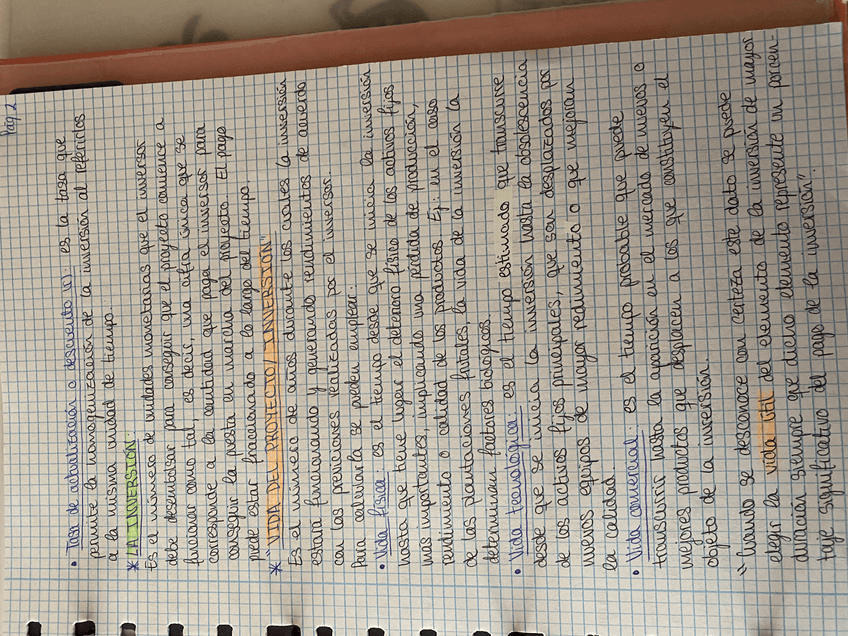 Pág. 2
• Tasa de actualización o descuento (i): es la tasa que
permite la homogenización de la inversión al referirlos
a la misma unidad de tiempo.
* LA INVERSIÓN:
Es el número de unidades monetarias que el inversor
debe desembolsar para conseguir que el proyecto comience a
funcionar como tal, es decir, una cifra única que se
corresponde a la cantidad que paga el inversor para
conseguir la puesta en marcha del proyecto. El pago
puede estar fraccionado a lo largo del tiempo.
* "VIDA DEL PROYECTO / INVERSIÓN"
Es el número de años durante los cuales la inversión
estará funcionando y generando rendimientos de acuerdo
con las previsiones realizadas por el inversor.
Para calcularla se pueden emplear:
• Vida física: es el tiempo desde que se inicia la inversión
hasta que tiene lugar el deterioro físico de los activos fijos
más importantes, implicando una pérdida de producción,
rendimiento o calidad de los productos Ej.: en el caso
de las plantaciones frutales, la vida de la inversión la
determinan factores biológicos.
• Vida tecnológica: es el tiempo estimado que transcurre
desde que se inicia la inversión hasta la obsolescencia
de los activos fijos principales, que son desplazados por
nuevos equipos de mayor redimiento o que mejoran
la calidad.
• Vida comercial: es el tiempo probable que puede
transcurrir hasta la aparición en el mercado de nuevos o
mejores productos que desplacen a los que constituyen el
objeto de la inversión.
"Cuando se desconoce con certeza este dato se puede
elegir la vida útil del elemento de la inversión de mayor
duración siempre que dicho elemento represente un porcen-
taje significativo del pago de la inversión".